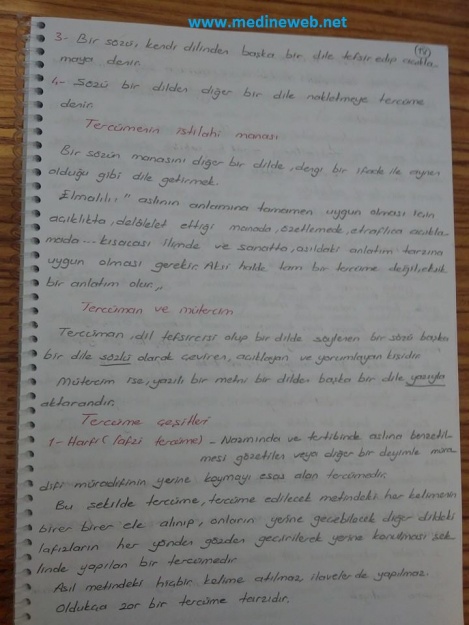 www.medineweb.net
3- Bir sözü, kendi dilinden başka bir dile tefsir edip açıkla-
maya denir.
4- Sözü bir dilden diğer bir dile nakletmeye tercüme
denir.
Tercümenin ıstılahi manası
Bir sözün manasını diğer bir dilde, dengi bir ifade ile aynen
olduğu gibi dile getirmek.
Elmalılı; " aslının anlamına tamamen uygun olması için
açıklıkta, delâlet ettiği manada, özetlemede, etraflıca açıkla-
mada... kısacası ilimde ve sanatta, asıldaki anlatım tarzına
uygun olması gerekir. Aksi halde tam bir tercüme değil, eksik
bir anlatım olur."
Tercüman ve mütercim
Tercüman, dil tefsircisi olup bir dilde söylenen bir sözü başka
bir dile sözlü olarak çeviren, açıklayan ve yorumlayan kişidir
Mütercim ise, yazılı bir metni bir dilden başka bir dile yazıyla
aktarandır.
Tercüme çeşitleri
1- Harfi (lafzi tercüme) - Nazmında ve tertibinde aslına benzetil-
mesi gözetilen veya diğer bir deyimle müra-
difi müradifinin yerine koymayı esas alan tercümedir.
Bu şekilde tercüme, tercüme edilecek metindeki her kelimenin
birer birer ele alınıp, onların yerine geçebilecek diğer dildeki
lafızların her yönden gözden geçirilerek yerine konulması şek-
linde yapılan bir tercümedir
Asıl metindeki hiçbir kelime atılmaz, ilaveler de yapılmaz.
Oldukça zor bir tercüme tarzıdır.